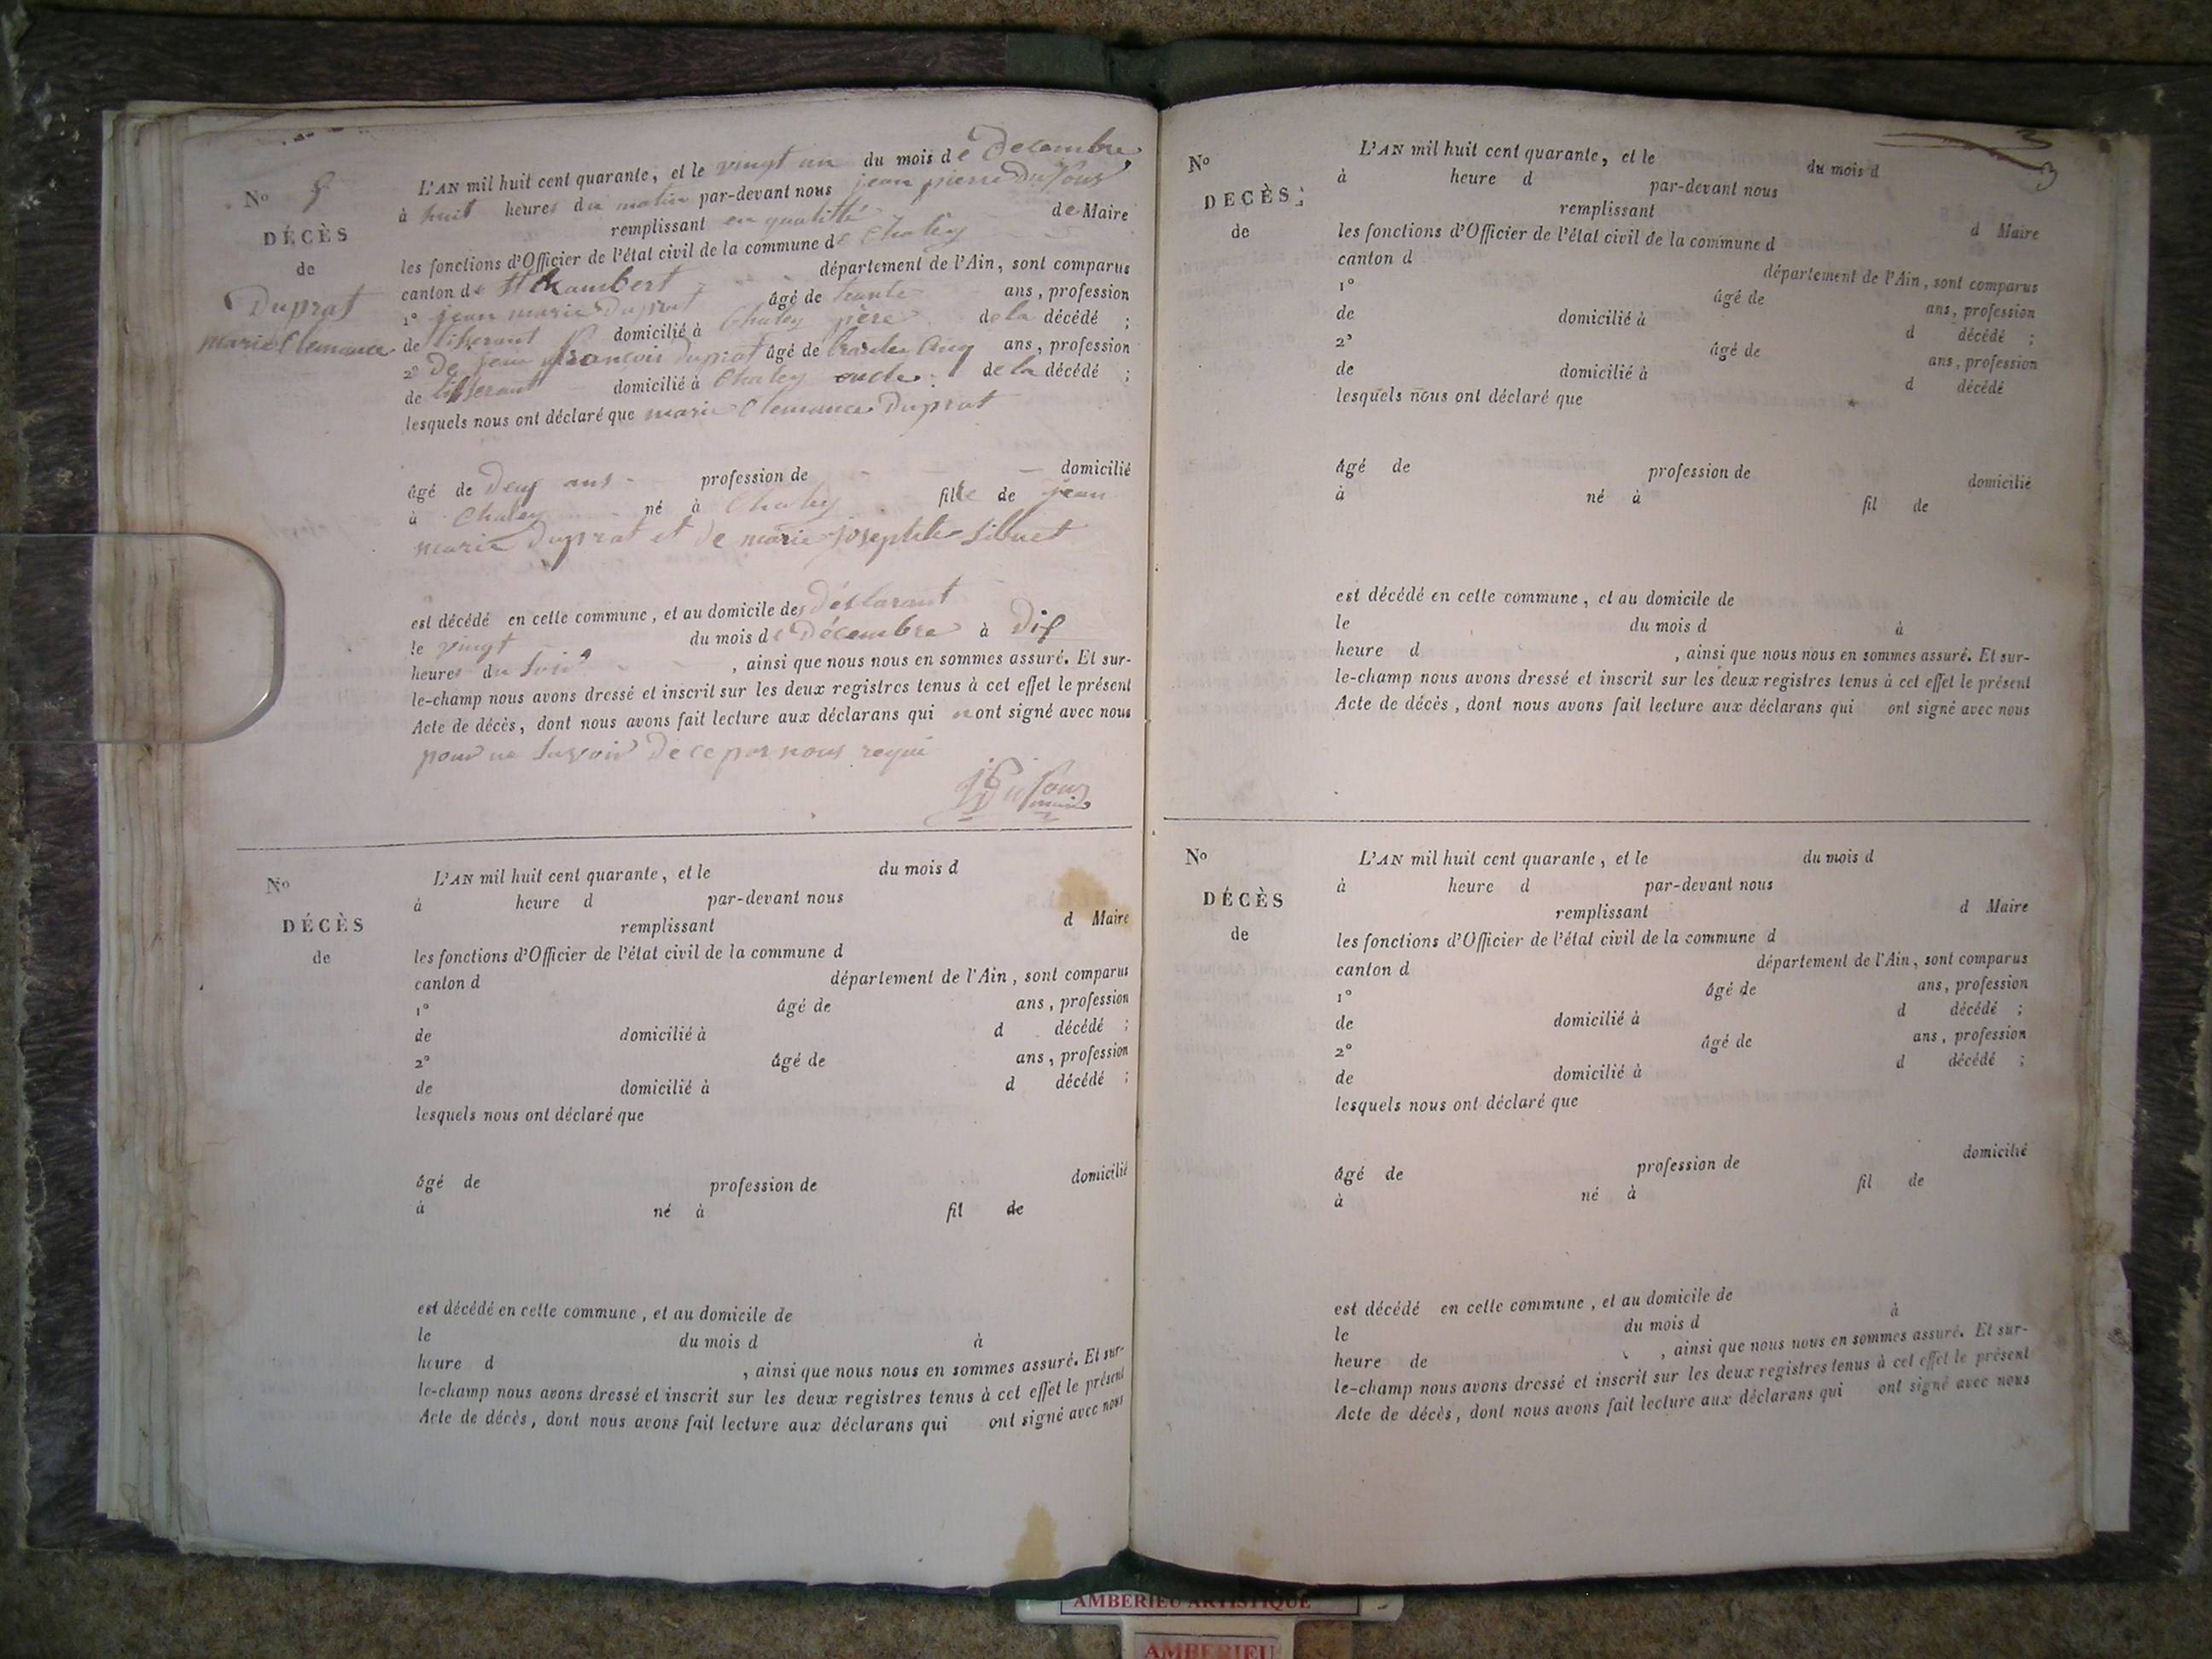 No
DÉCÈS
de
Duprat
marie Clemance
L'AN mil huit cent quarante, et le vingt un du mois de Decembre
à huit heures du matin par-devant nous jean pierre Dufour
remplissant en qualitté de Maire
les fonctions d'Officier de l'état civil de la commune de Chaley
canton de St Rambert département de l'Ain, sont comparus
1° jean marie Duprat âgé de trante ans, profession
de tisserant domicilié à Chaley père de la décédé ;
2° De jean françois Duprat âgé de trante cinq ans, profession
de tisserant domicilié à Chaley oncle de la décédé ;
lesquels nous ont déclaré que marie Clemance Duprat
âgé de Deux ans profession de domicilié
à Chaley né à Chaley fille de jean
marie Duprat et de marie josephte Sibuet
est décédé en cette commune, et au domicile des déclarant
le vingt du mois de Décembre à Dix
heures du Soir, ainsi que nous nous en sommes assuré. Et sur-
le-champ nous avons dressé et inscrit sur les deux registres tenus à cet effet le présent
Acte de décès, dont nous avons fait lecture aux déclarans qui n ont signé avec nous
pour ne savoir de ce par nous requi
Dufour
maire
No
DÉCÈS
de
L'AN mil huit cent quarante, et le du mois d
à heure d par-devant nous
remplissant d Maire
les fonctions d'Officier de l'état civil de la commune d
canton d département de l'Ain, sont comparus
1° âgé de ans, profession
de domicilié à d décédé ;
2° âgé de ans, profession
de domicilié à d décédé ;
lesquels nous ont déclaré que
âgé de profession de domicilié
à né à fil de
est décédé en cette commune, et au domicile de
le du mois d à
heure d , ainsi que nous nous en sommes assuré. Et sur-
le-champ nous avons dressé et inscrit sur les deux registres tenus à cet effet le présent
Acte de décès, dont nous avons fait lecture aux déclarans qui ont signé avec nous
No
DÉCÈS
de
L'AN mil huit cent quarante, et le du mois d
à heure d par-devant nous
remplissant d Maire
les fonctions d'Officier de l'état civil de la commune d
canton d département de l'Ain, sont comparus
1° âgé de ans, profession
de domicilié à d décédé ;
2° âgé de ans, profession
de domicilié à d décédé
lesquels nous ont déclaré que
âgé de profession de domicilié
à né à fil de
est décédé en cette commune, et au domicile de
le du mois d à
heure d , ainsi que nous nous en sommes assuré. Et sur-
le-champ nous avons dressé et inscrit sur les deux registres tenus à cet effet le présent
Acte de décès, dont nous avons fait lecture aux déclarans qui ont signé avec nous
No
DÉCÈS
de
L'AN mil huit cent quarante, et le du mois d
à heure d par-devant nous
remplissant d Maire
les fonctions d'Officier de l'état civil de la commune d
canton d département de l'Ain, sont comparus
1° âgé de ans, profession
de domicilié à d décédé ;
2° âgé de ans, profession
de domicilié à d décédé ;
lesquels nous ont déclaré que
âgé de profession de domicilié
à né à fil de
est décédé en cette commune, et au domicile de
le du mois d à
heure de , ainsi que nous nous en sommes assuré. Et sur-
le-champ nous avons dressé et inscrit sur les deux registres tenus à cet effet le présent
Acte de décès, dont nous avons fait lecture aux déclarans qui ont signé avec nous
AMBERIEU ARTISTIQUE
AMBERIEU